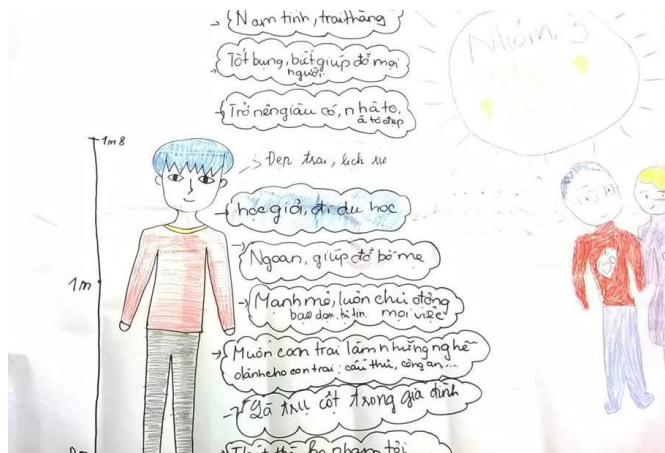 Nam tính, trai thẳng
Tốt bụng, biết giúp đỡ mọi
người
Trở nên giàu có, nhà to,
ô tô đẹp
1m8
Đẹp trai, lịch sự
học giỏi, đi du học
Ngoan, giúp đỡ bố mẹ
1m
Mạnh mẽ, luôn chủ động
bạo dạn, tự tin mọi việc
Muốn con trai làm những nghề
dành cho con trai: cầu thủ, công an,...
Là trụ cột trong gia đình
phạm tội
Nhóm 3